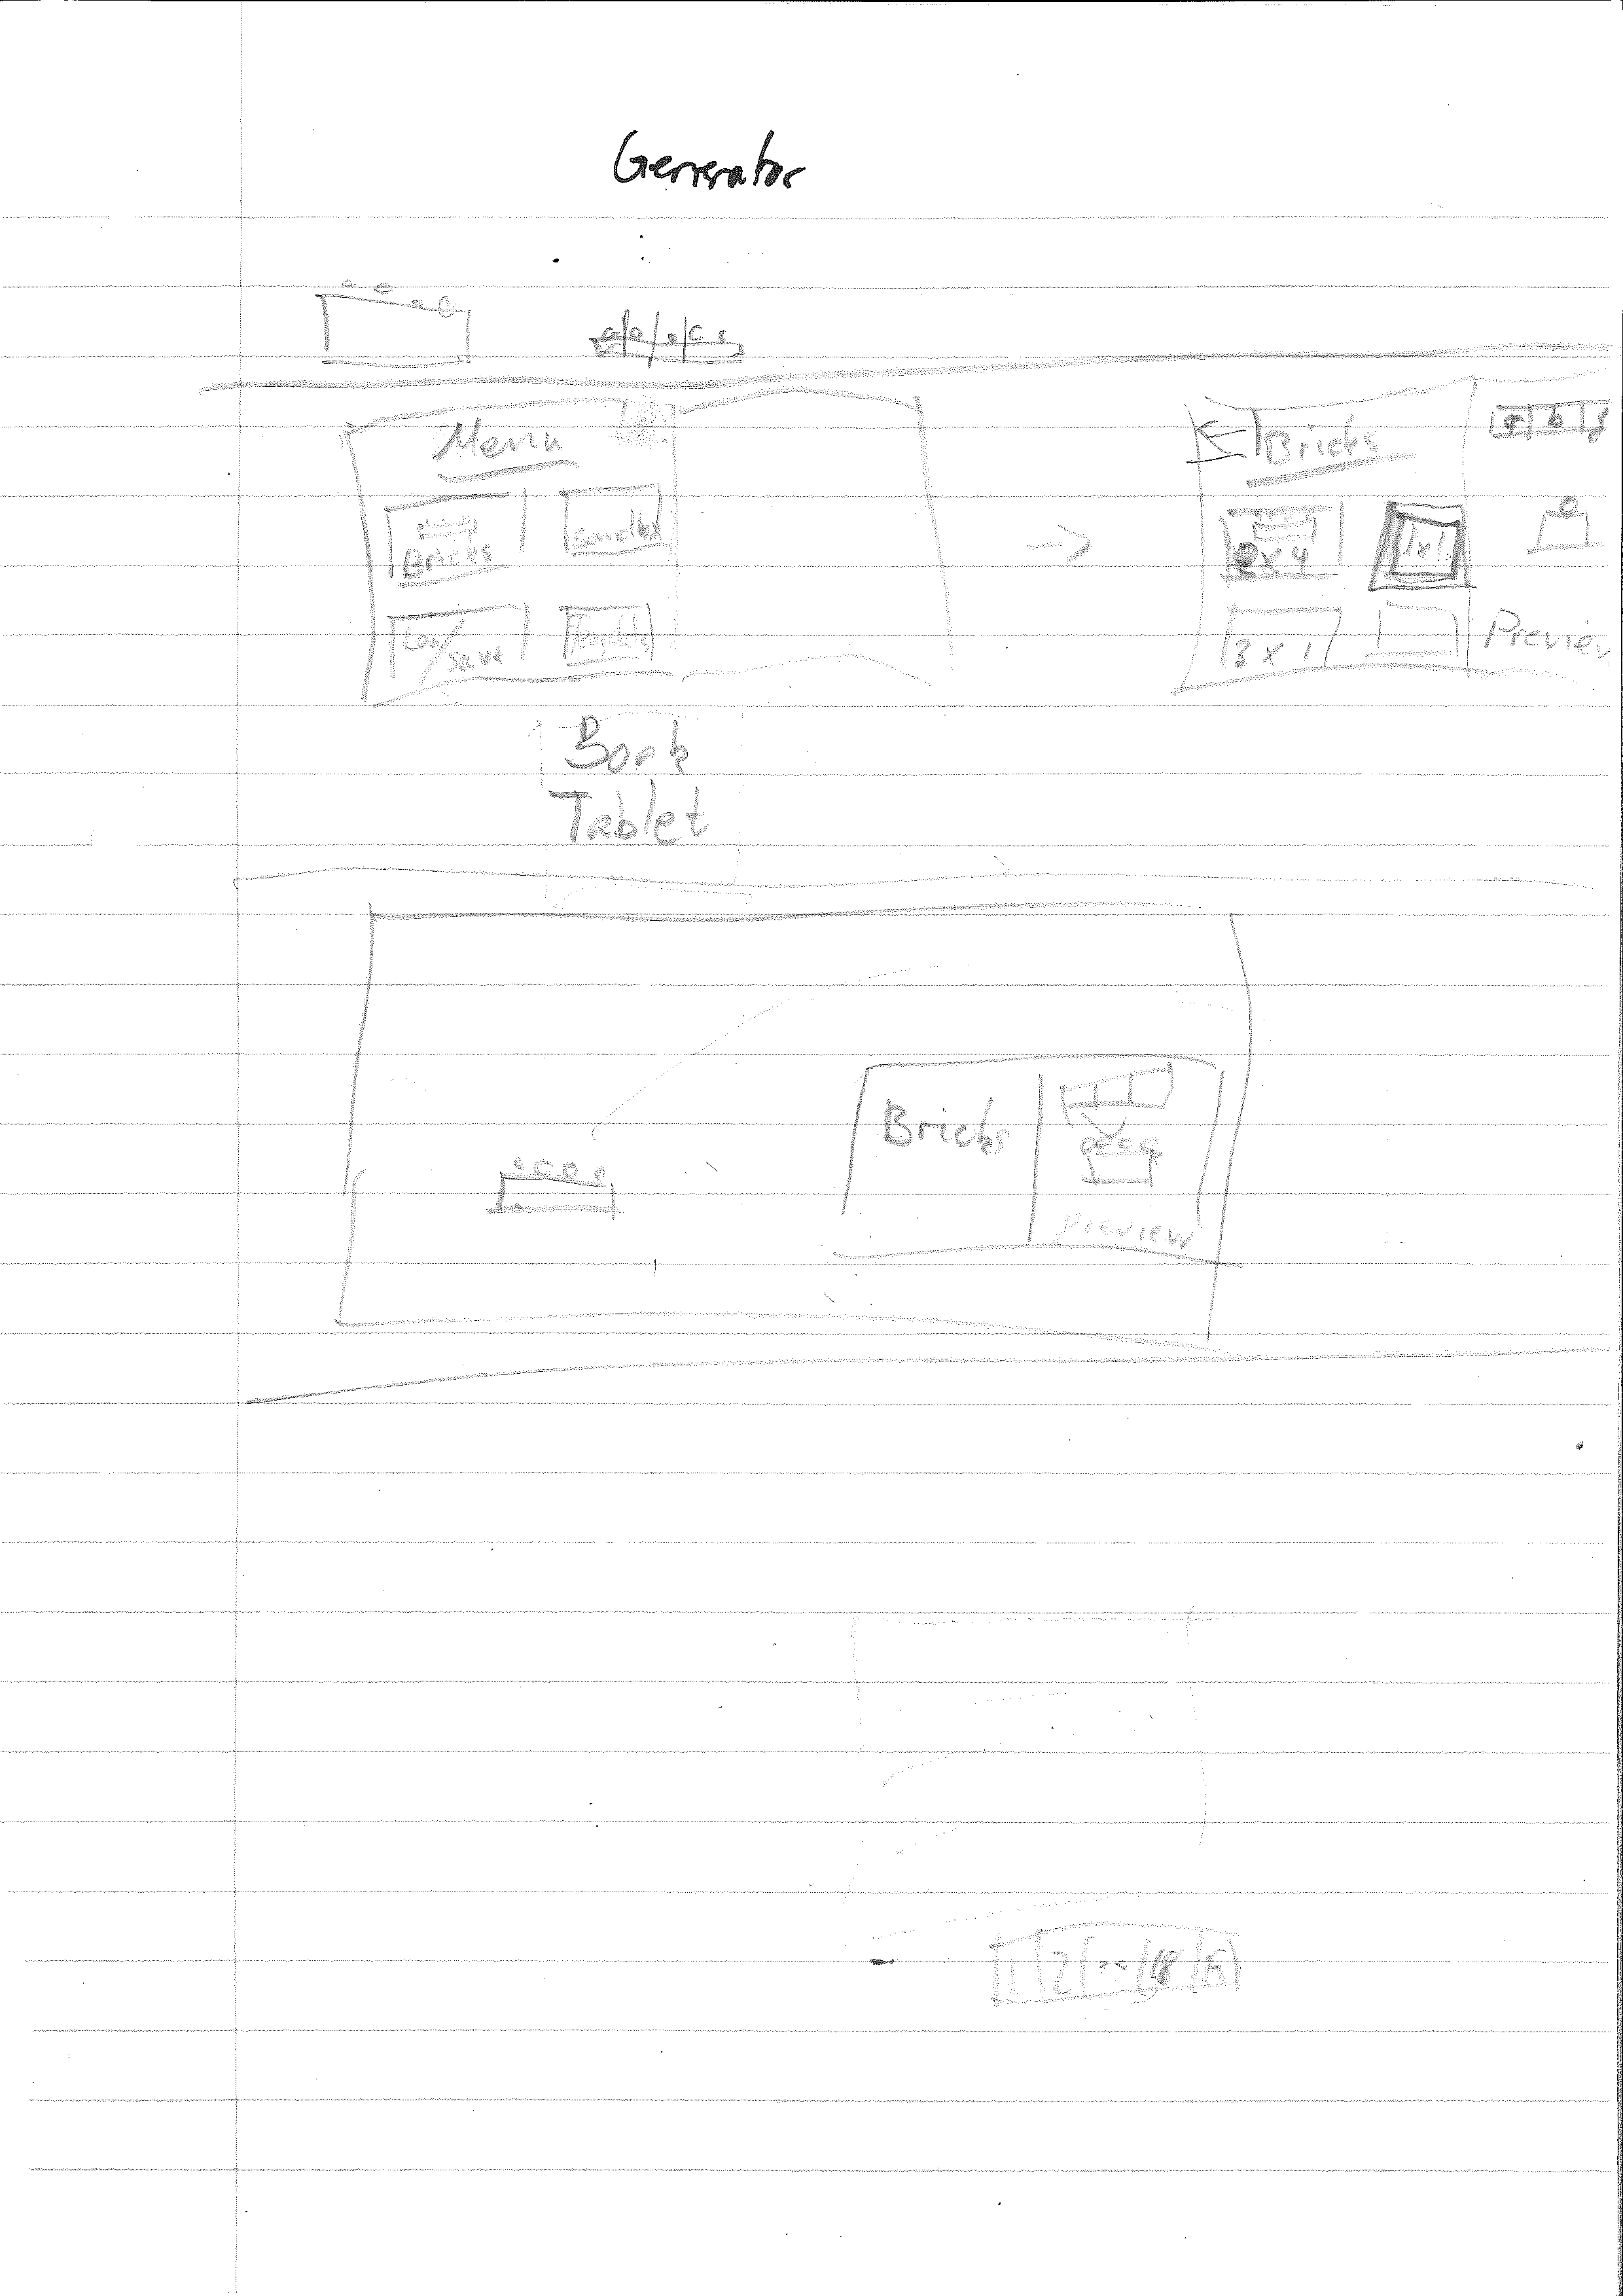 Generator
Menu
Bricks
Load/
Save
Bricks
2 x 4
1x1
3 x 1
Preview
Book
Tablet
Bricks
Preview
1 2